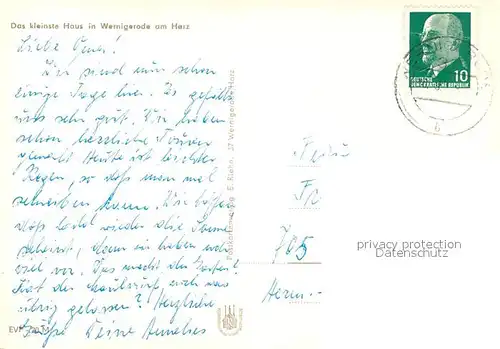 Das kleinste Haus in Wernigerode am Harz
Liebe Oma!
Wir sind nun schon
einige Tage hier. Es gefällt
uns sehr gut. Wir haben
schon herrliche Touren
gemacht. Heute ist leichter
Regen, so daß man mal
schreiben kann. Wir hoffen
daß bald wieder die Sonne
scheint, denn wir haben noch
viel vor. Was macht der Garten?
Hat der Maulwurf euch was
übrig gelassen? Herzliche
Grüße Deine Annelies
EVP
Postkartenverlag E. Riehn, 37 Wernigerode/Harz
DEUTSCHE
DEMOKRATISCHE REPUBLIK
10
b
705
Herm.-
privacy protection
Datenschutz